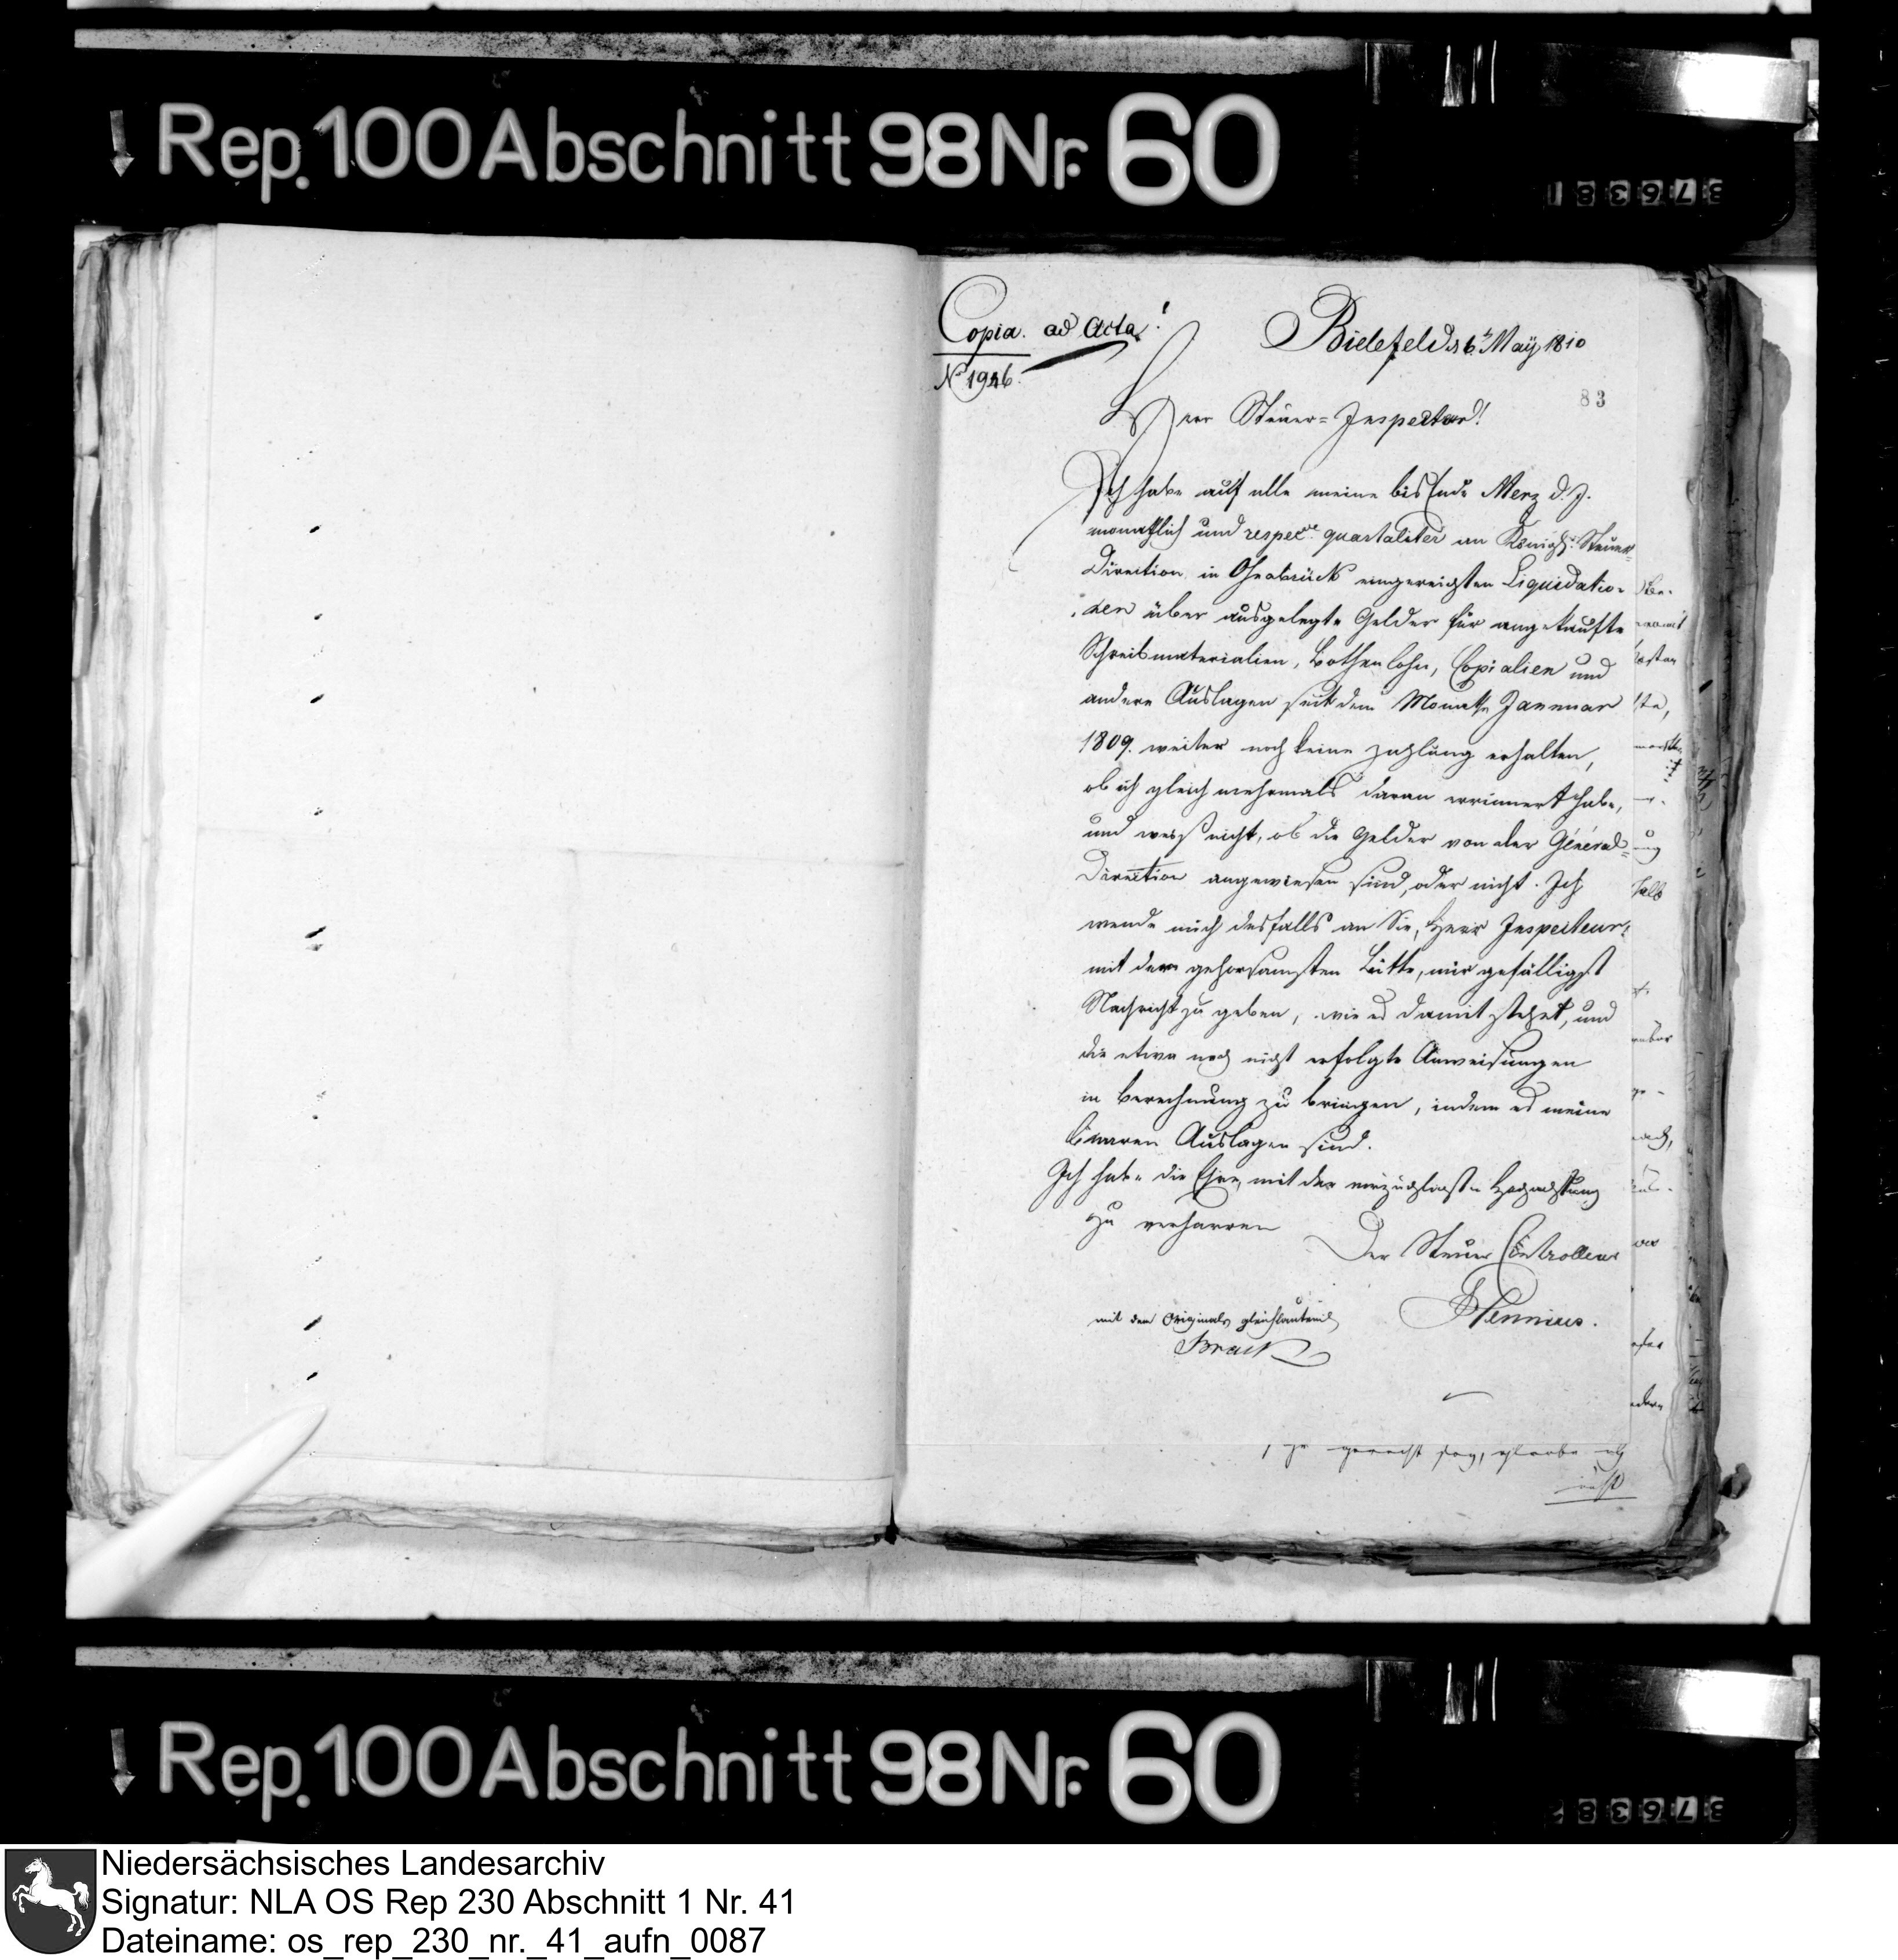 ↓ Rep. 100 Abschnitt 98 Nr. 60
Copia. ad Acta!
No 1946.
Bielefeld d 6t May 1810
83
Herr Steuer-Inspector!
Ich habe auf alle meine bis Ende Merz d. J.
monathlich und respecve quartaliter an Königl. Steuer-
Direction in Osnabrück eingereichten Liquidatio-
nen über ausgelegte Gelder für angekaufte
Schreibmaterialien, Bothenlohn, Copialien und
andere Auslagen seit dem Monathe Januar
1809. weiter noch keine Zahlung erhalten,
ob ich gleich mehrmals daran errinnert habe,
und weiß nicht, ob die Gelder von der Général-
Direction angewiesen sind, oder nicht. Ich
wende mich desfalls an Sie, Herr Inspecteur,
mit der gehorsamsten Bitte, mir gefälligst
Nachricht zu geben, wie es damit stehet, und
die etwa noch nicht erfolgte Anweisungen
in Berechnung zu bringen, indem es meine
baaren Auslagen sind.
Ich habe die Ehre, mit der vorzüglichsten Hochachtung
zu verharren
Der Steuer Controlleur
Hennius.
mit dem Originale gleichlautend
Brack
↓ Rep. 100 Abschnitt 98 Nr. 60
Niedersächsisches Landesarchiv
Signatur: NLA OS Rep 230 Abschnitt 1 Nr. 41
Dateiname: os_rep_230_nr._41_aufn_0087